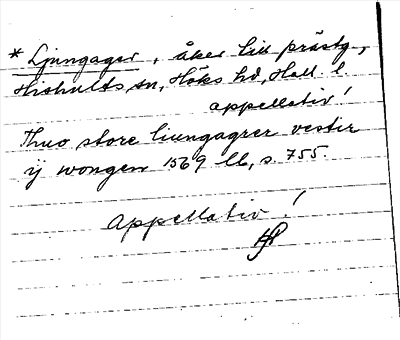 * Ljungager, åker till prästg,
Hishults sn, Höks hd, Hall. l
appellativ!
Thuo store liungagrer vestir
ÿ wongen 1569 LL, s. 755.
Appellativ!